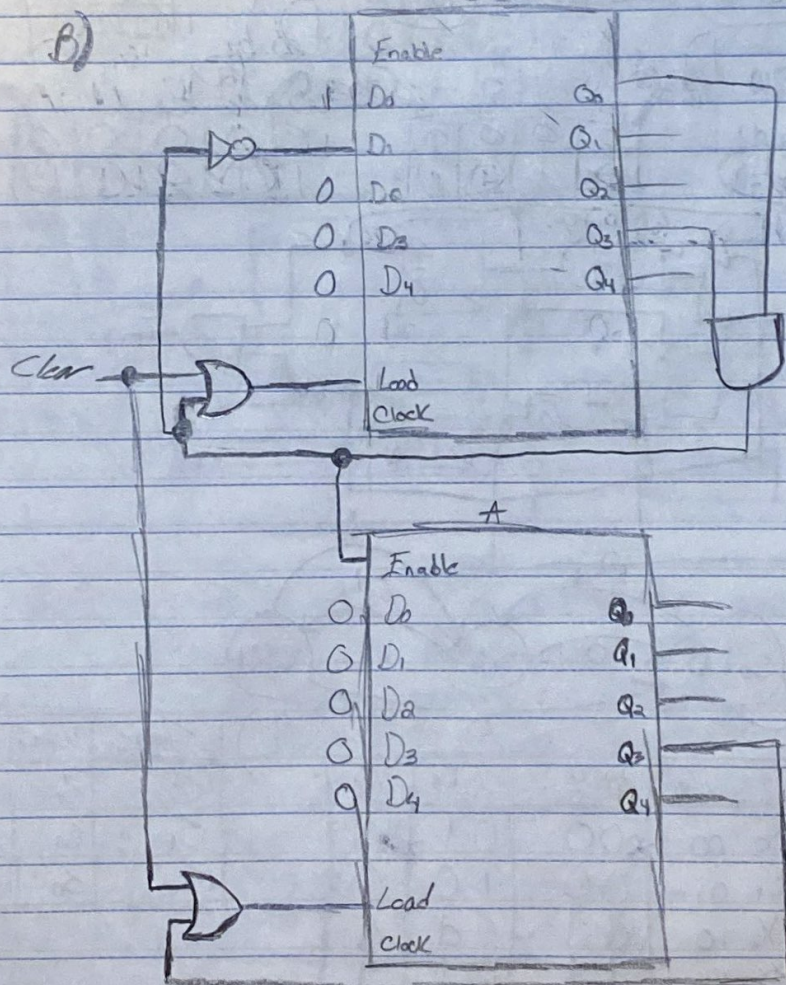 B)
Enable
1 D0 Q0
D1 Q1
0 D0 Q2
0 D3 Q3
0 D4 Q4
Clear
Load
Clock
A
Enable
0 D0 Q0
0 D1 Q1
0 D2 Q2
0 D3 Q3
0 D4 Q4
Load
Clock